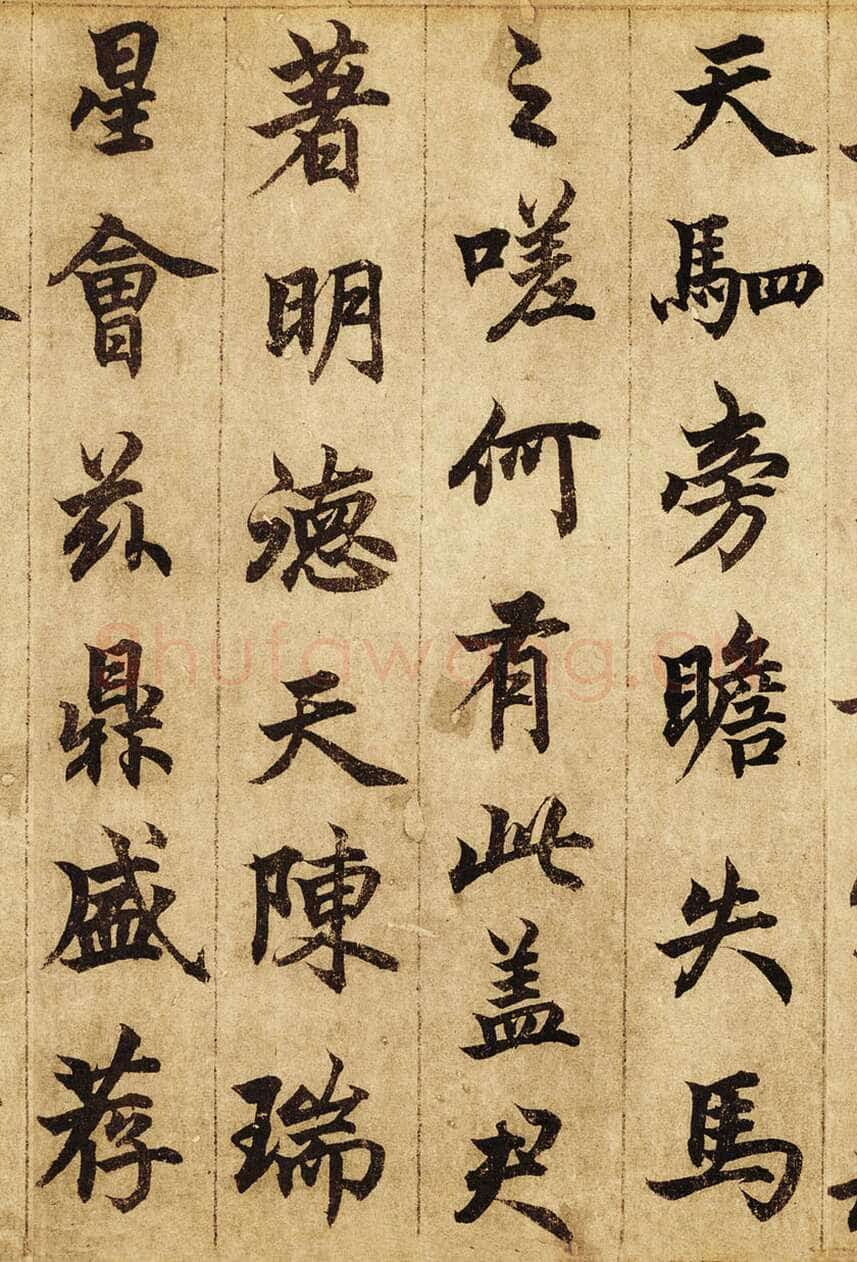 天駟旁瞻失馬
之嗟何有此盖君
著明德天陳瑞
星會兹鼎盛荐
Shufawang.cn